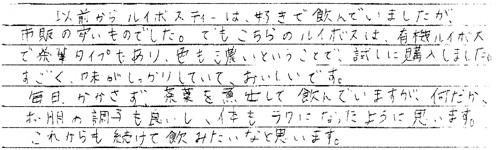 以前からルイボスティーは、好きで飲んでいましたが、
市販の安いものでした。でもこちらのルイボスは、有機ルイボス
で発酵タイプもあり、色も濃いということで、試しに購入しました。
すごく、味がしっかりしていて、おいしいです。
毎日、かかさず、茶葉を煮出して飲んでいますが、何だか、
お腹の調子も良いし、体もラクになったように思います。
これからも続けて飲みたいなと思います。